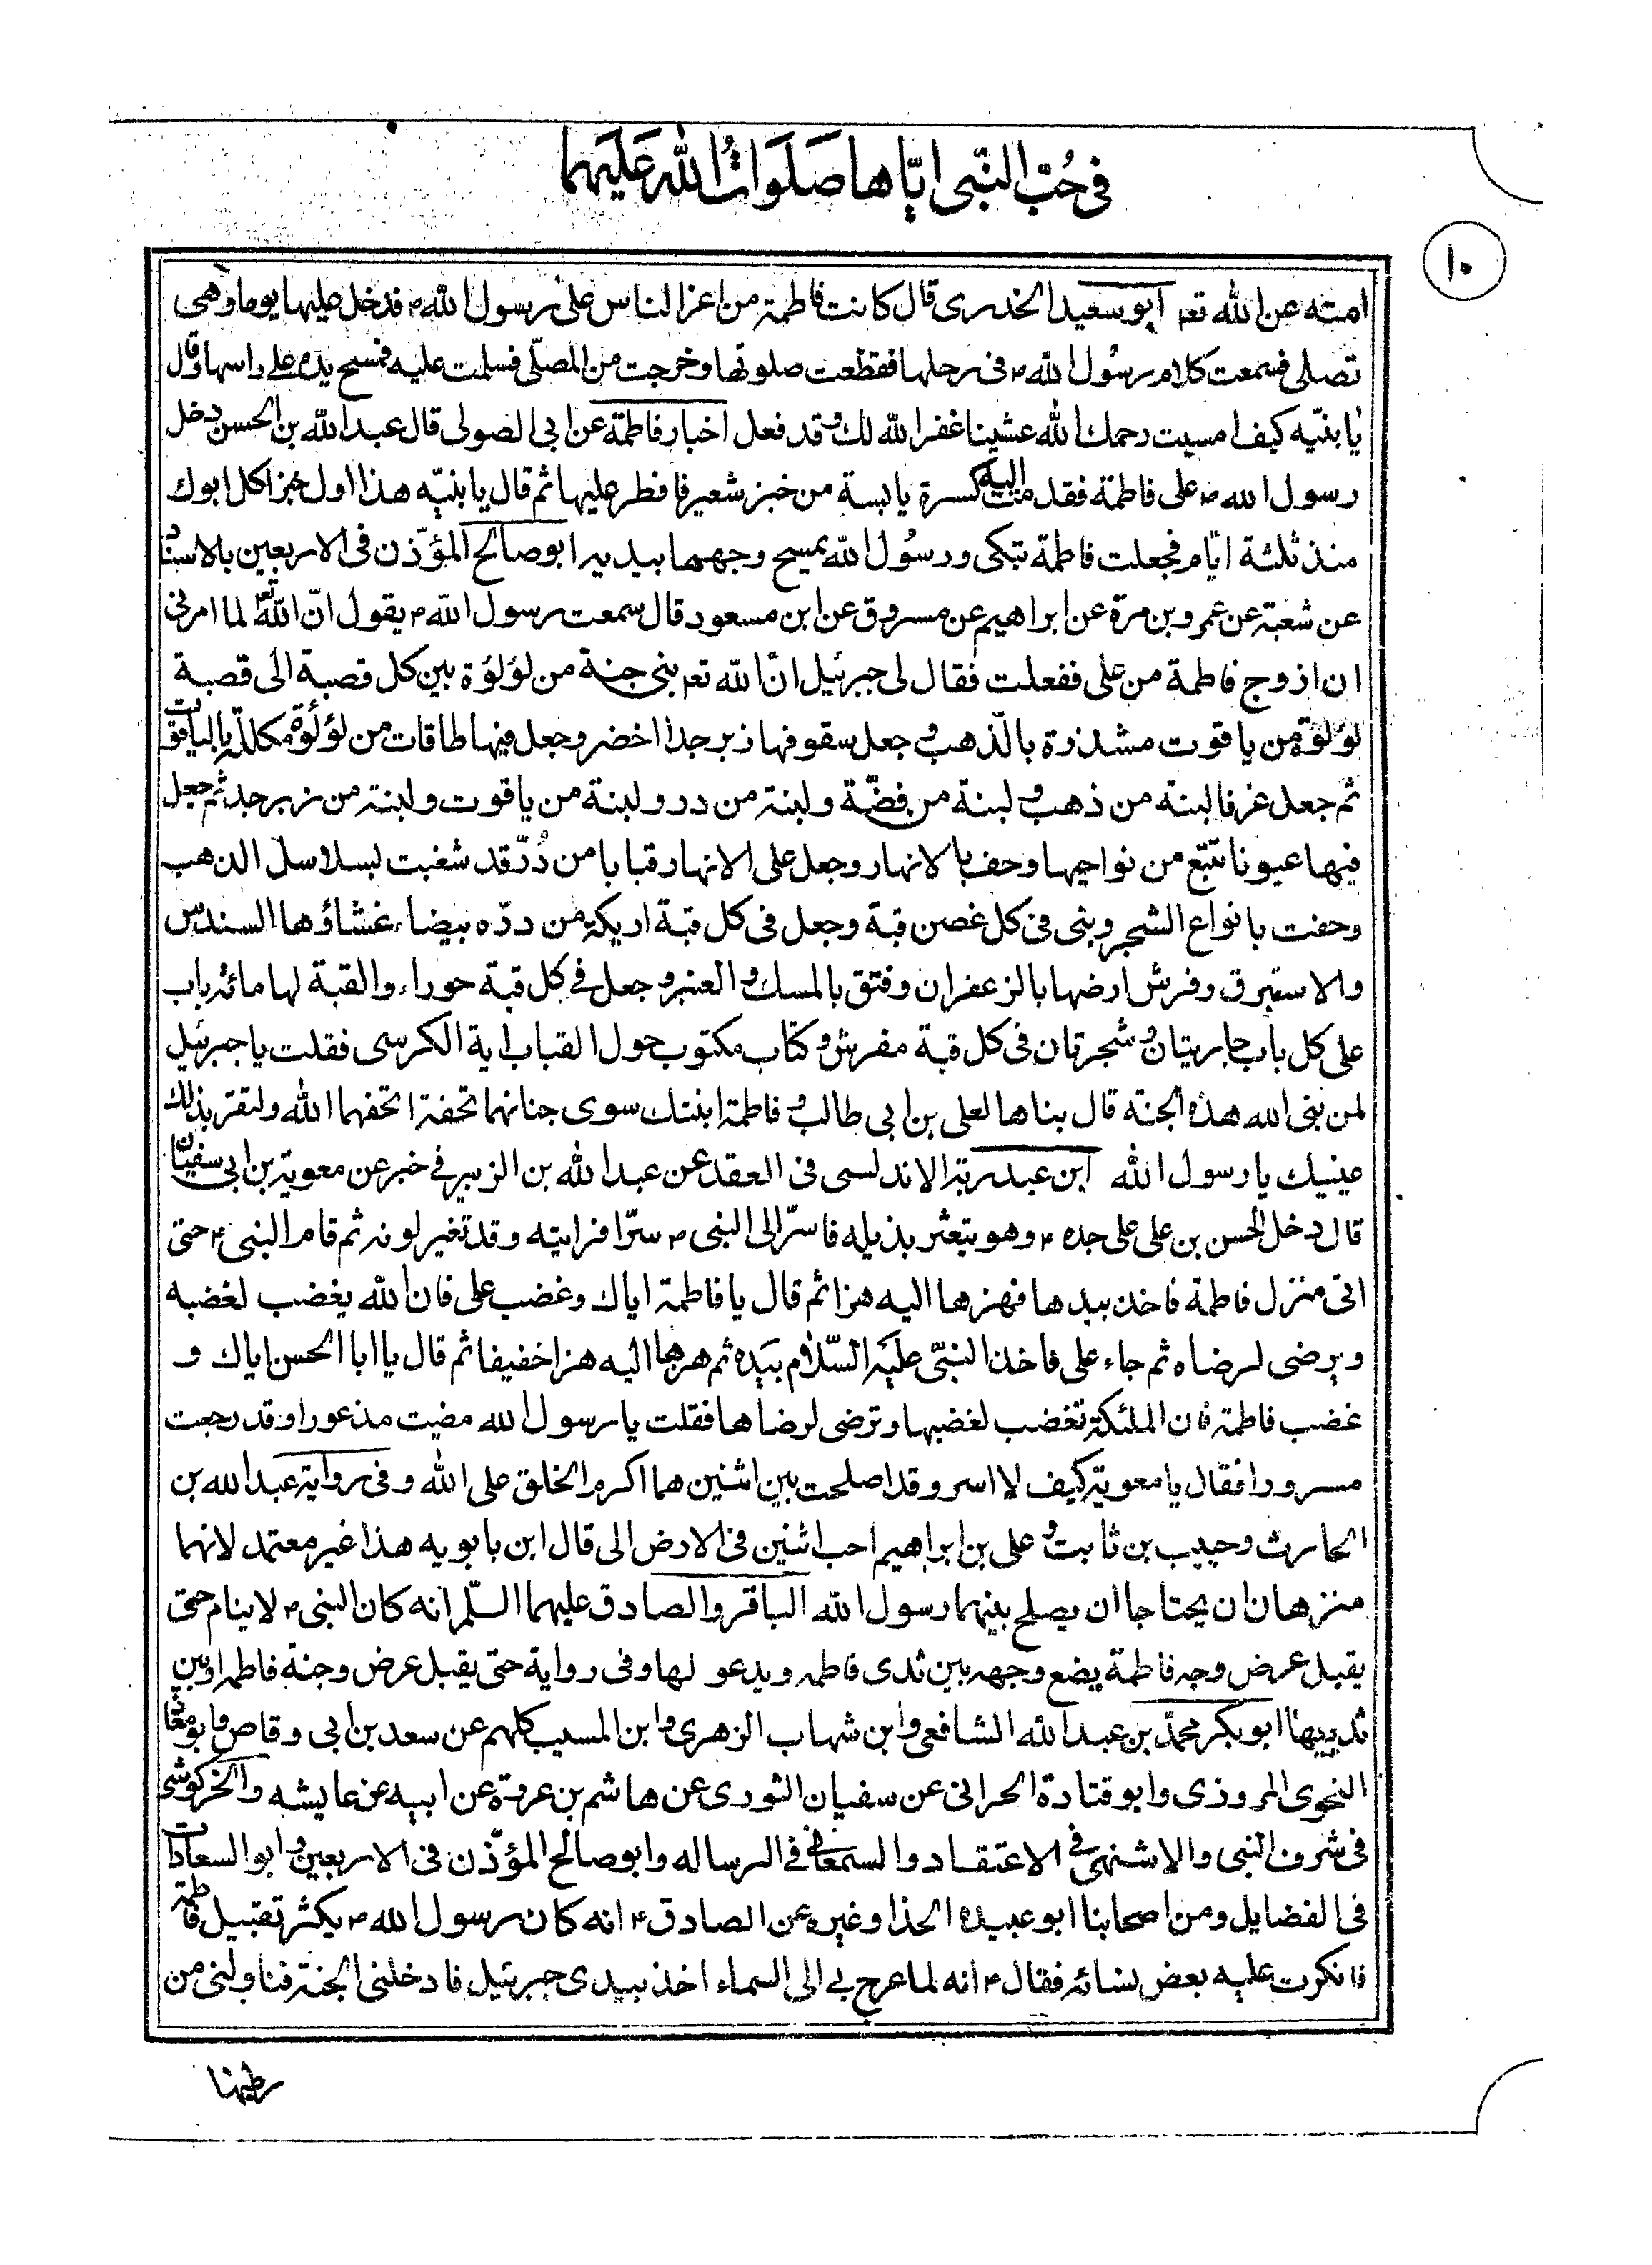 في حُبّ النّبي ايّاها صَلَوَاتُ اللّٰه عَلَيهما
١٠
امته عن اللّٰه تعہ ابو سعيد الخدرى قال كانت فاطمة من اعز الناس على رسول اللّٰه ص فدخل عليها يوما وهى
تصلى فسمعت كلام رسُول اللّٰه ص فى رحلها فقطعت صلوتها وخرجت من المصلّى فسلمت عليه فمسح يده على راسها وقال
يا بنيّه كيف امسيت رحمك اللّٰه عشينا غفر اللّٰه لك وقد فعل اخبار فاطمة عن ابى الصولى قال عبد اللّٰه بن الحسن دخل
رسول الله ص على فاطمة فقدمت اليه كسرة يابسة من خبز شعير فافطر عليها ثم قال يا بنيّه هذا اول خبز اكل ابوك
منذ ثلثة ايّام فجعلت فاطمة تبكى ورسُول اللّٰه يمسح وجهها بيديه ابو صالح المؤذّن فى الاربعين بالاسناد
عن شعبة عن عمرو بن مرة عن ابراهيم عن مسروق عن ابن مسعود قال سمعت رسول اللّٰه ص يقول انّ اللّٰه تعہ لما امرنى
ان ازوج فاطمة من على ففعلت فقال لى جبرئيل انّ اللّٰه تعہ بنى جنة من لؤلؤة بين كل قصبة الى قصبة
لؤلؤة من ياقوت مشذرة بالذّهب و جعل سقوفها زبرجدا اخضر وجعل فيها طاقات من لؤلؤة مكللة بالياقوت
ثم جعل غرفا لبنة من ذهب و لبنة من فضّة ولبنة من در ولبنة من ياقوت ولبنة من زبرجد ثم جعل
فيها عيونا تنبع من نواحيها وحف بالانهار وجعل على الانهار قبابا من دُرّ قد شغبت بسلاسل الذهب
وحفت بانواع الشجر وبنى فى كل غصن قبة وجعل فى كل قبة اريكة من درّه بيضاء غشاؤها السندس
والاستبرق وفرش ارضها بالزعفران وفتق بالمسك و العنبر وجعل فى كل قبة حوراء والقبة لها مائة باب
على كل باب جاريتان و شجرتان فى كل قبة مفرش و كتاب مكتوب حول القباب اية الكرسى فقلت يا جبرئيل
لمن بنى الله هذه الجنة قال بناها لعلى بن ابى طالب و فاطمة ابنتك سوى جنانهما تحفة اتحفهما اللّٰه ولتقر بذلك
عينيك يا رسول اللّٰه ابن عبد ربه الاندلسى فى العقد عن عبد اللّٰه بن الزبير فى خبر عن معوية بن ابى سفيان
قال دخل الحسن بن على على جده ص وهو يتعثر بذيله فاسرّ الى النبى ص سرّا فرايته وقد تغير لونه ثم قام النبى ص حتى
اتى منزل فاطمة فاخذ بيدها فهزها اليه هزا ثم قال يا فاطمة اياك وغضب على فان اللّٰه يغضب لغضبه
ويرضى لرضاه ثم جاء على فاخذ النبىّ عليه السّلام بيده ثم هزها اليه هزا خفيفا ثم قال يا ابا الحسن اياك و
غضب فاطمة فان الملئكة تغضب لغضبها وترضى لرضاها فقلت يا رسول الله مضيت مذعورا وقد رجعت
مسرورا فقال يا معوية كيف لا اسر وقد اصلحت بين اثنين هما اكرم الخلق على اللّٰه وفى رواية عبد الله بن
الحارث وحبيب بن ثابت و على بن ابراهيم احب اثنين فى الارض الى قال ابن بابويه هذا غير معتمد لانهما
منزهان ان يحتاجا ان يصلح بينهما رسول اللّٰه الباقر والصادق عليهما السلم انه كان النبى ص لا ينام حتى
يقبل عرض وجه فاطمة يضع وجهه بين ثدى فاطمه ويدعو لها وفى رواية حتى يقبل عرض وجنة فاطمه او بين
ثدييها ابو بكر محمّد بن عبد اللّٰه الشافعى و ابن شهاب الزهرى و ابن المسيب كلهم عن سعد بن ابى وقاص و ابو معاذ
النحوى المروزى وابو قتادة الحرانى عن سفيان الثورى عن هاشم بن عروة عن ابيه عن عايشه والخركوشى
فى شرف النبى والاشنهى فى الاعتقاد والسمعانى فى الرساله وابو صالح المؤذّن فى الاربعين و ابو السعادات
فى الفضايل ومن اصحابنا ابو عبيدة الحذا وغيره عن الصادق ع انه كان رسول الله ص يكثر تقبيل فاطمة
فانكرت عليه بعض نسائه فقال ع انه لما عرج بى الى السماء اخذ بيدى جبرئيل فادخلنى الجنة فناولنى من
رطبها